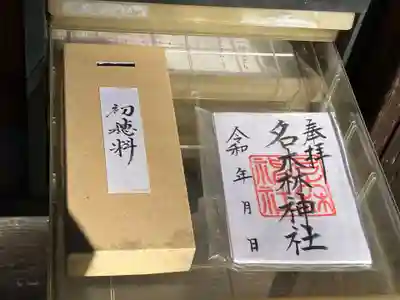 初穂料
奉拝
名木林神社
令和 年 月 日